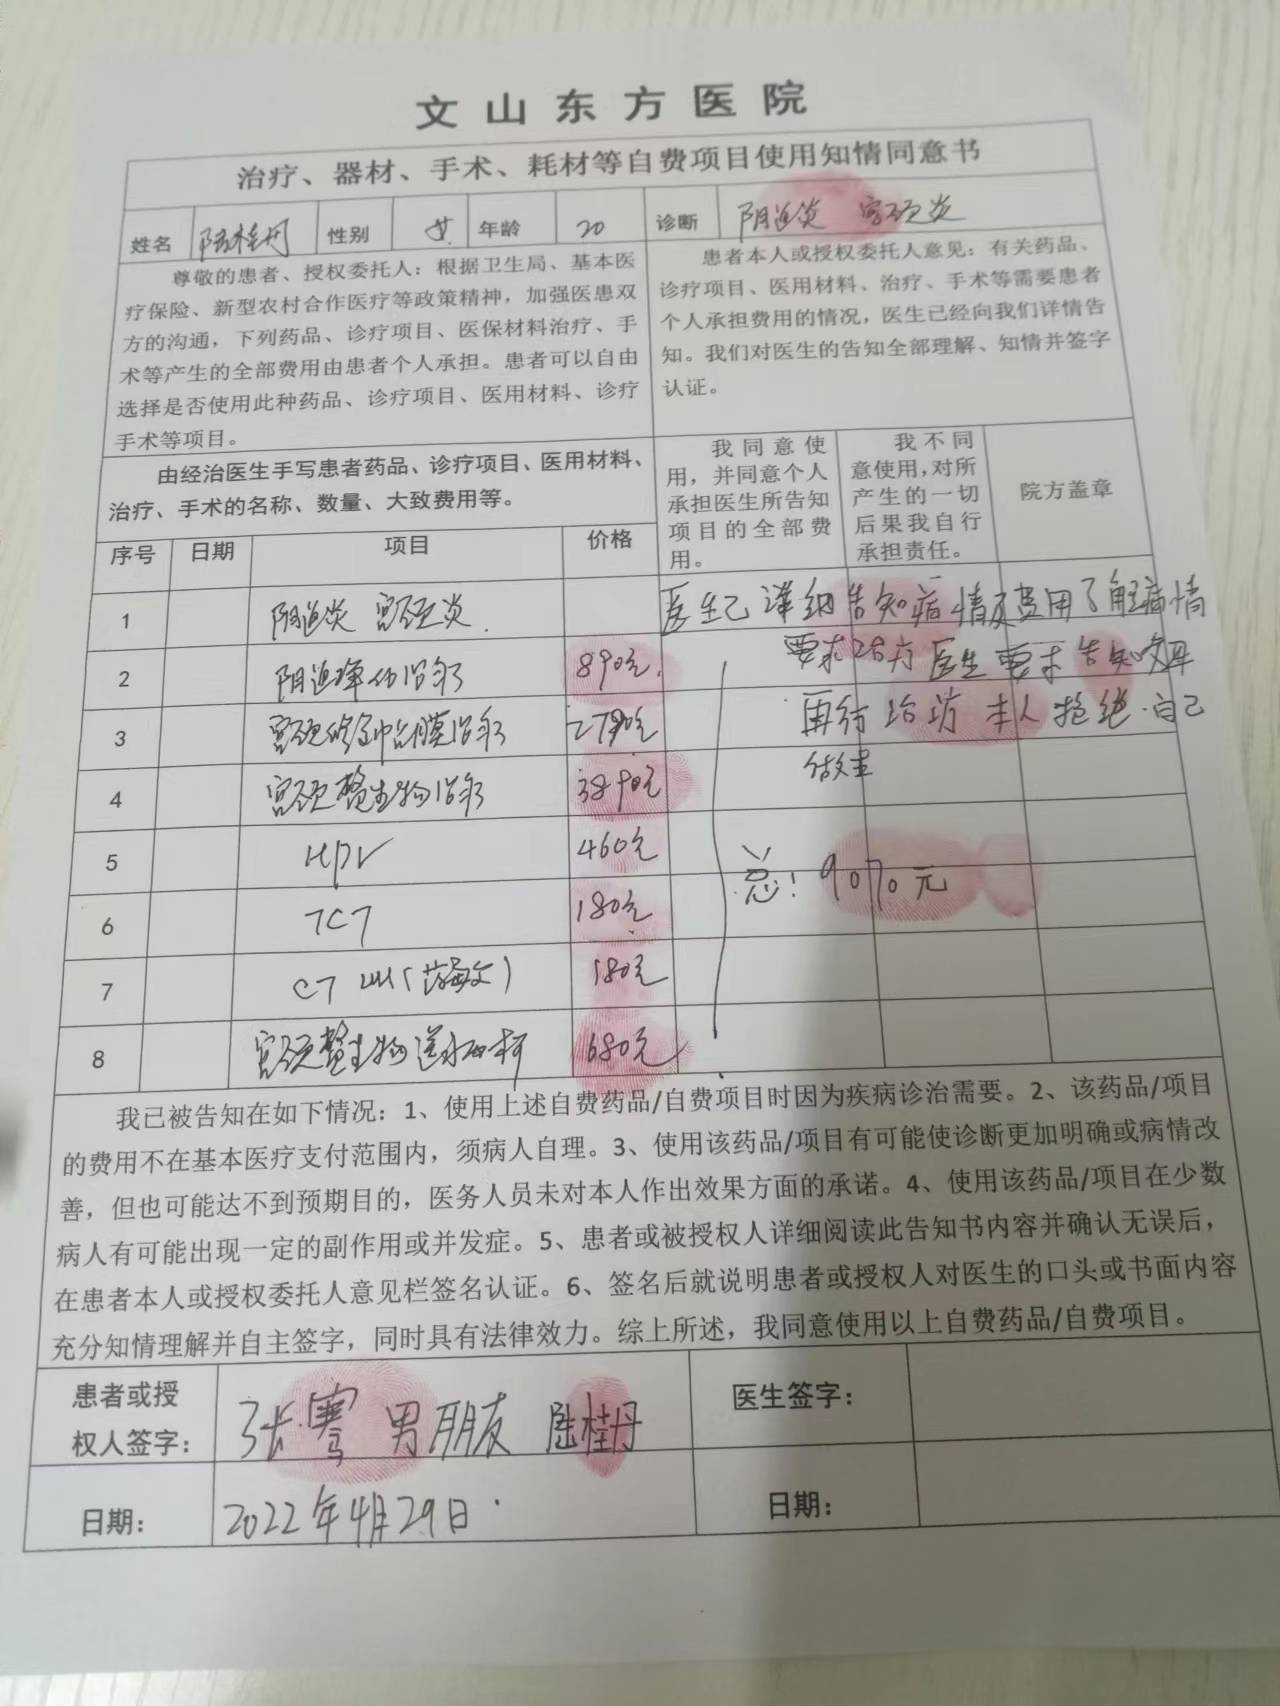 文山东方医院
治疗、器材、手术、耗材等自费项目使用知情同意书
姓名 陆桂丹 性别 女 年龄 20 诊断 阴道炎 宫颈炎
尊敬的患者、授权委托人：根据卫生局、基本医
疗保险、新型农村合作医疗等政策精神，加强医患双
方的沟通，下列药品、诊疗项目、医保材料治疗、手
术等产生的全部费用由患者个人承担。患者可以自由
选择是否使用此种药品、诊疗项目、医用材料、诊疗
手术等项目。
患者本人或授权委托人意见：有关药品、
诊疗项目、医用材料、治疗、手术等需要患者
个人承担费用的情况，医生已经向我们详情告
知。我们对医生的告知全部理解、知情并签字
认证。
由经治医生手写患者药品、诊疗项目、医用材料、
治疗、手术的名称、数量、大致费用等。
我同意使
用，并同意个人
承担医生所告知
项目的全部费
用。
我不同
意使用，对所
产生的一切
后果我自行
承担责任。
院方盖章
序号 日期 项目 价格
1 阴道炎 宫颈炎
2 阴道 治疗 890元
3 宫颈修复 膜治疗 2790元
4 宫颈整生物治疗 3890元
5 HPV 460元
6 TCT 180元
7 CT UU（药敏） 180元
8 宫颈整生物送 680元
医生已详细告知病情及费用了解病情
要求治疗 医生要求告知父母
再行治疗 本人拒绝·自己
做主
总！9070元
我已被告知在如下情况：1、使用上述自费药品/自费项目时因为疾病诊治需要。2、该药品/项目
的费用不在基本医疗支付范围内，须病人自理。3、使用该药品/项目有可能使诊断更加明确或病情改
善，但也可能达不到预期目的，医务人员未对本人作出效果方面的承诺。4、使用该药品/项目在少数
病人有可能出现一定的副作用或并发症。5、患者或被授权人详细阅读此告知书内容并确认无误后，
在患者本人或授权委托人意见栏签名认证。6、签名后就说明患者或授权人对医生的口头或书面内容
充分知情理解并自主签字，同时具有法律效力。综上所述，我同意使用以上自费药品/自费项目。
患者或授
权人签字： 张骞 男朋友 陆桂丹
医生签字：
日期： 2022年4月29日·
日期：